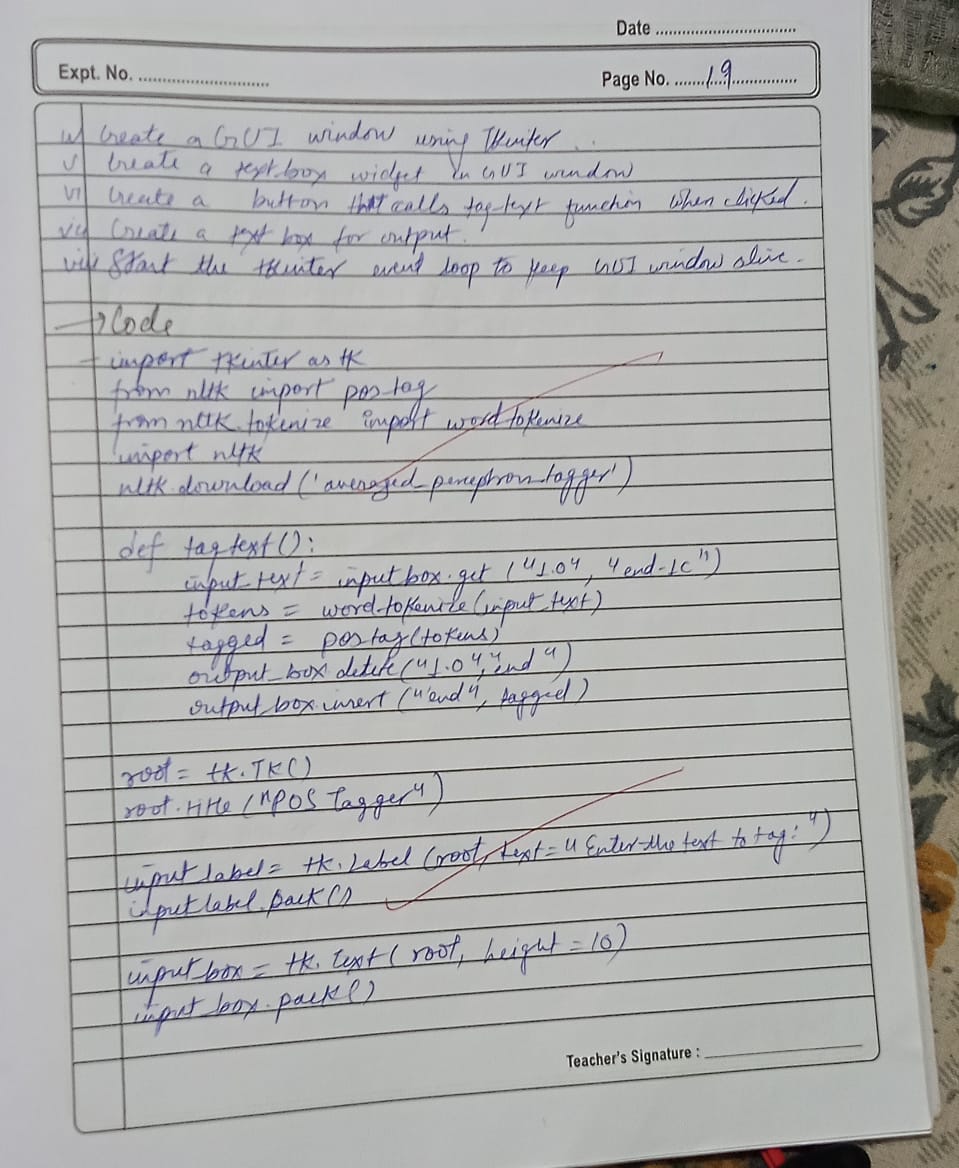 Date ..............................
Expt. No. ............................
Page No. ......19..............
iv) Create a GUI window using Tkinter ..
v) Create a text box widget in GUI window
vi) Create a button that calls tag-text function when clicked.
vii) Create a text box for output.
viii) Start the tkinter event loop to keep GUI window alive.
→ Code
- import tkinter as tk
from nltk import pos tag
from nltk.tokenize import word tokenize
import nltk
nltk.download ('averaged_perceptron_tagger')
def tag text():
input_text = input box.get ("1.0", "end-1c")
tokens = word-tokenize (input_text)
tagged = pos tag (tokens)
output_box delete ("1.0", "end")
output_box.insert ("end", tagged)
root = tk.TK()
root.title ("POS Tagger")
input label = tk.Label (root, text = "Enter the text to tag:")
input label.pack()
input box = tk.text ( root, height = 10)
input_box.pack()
Teacher's Signature : ____________